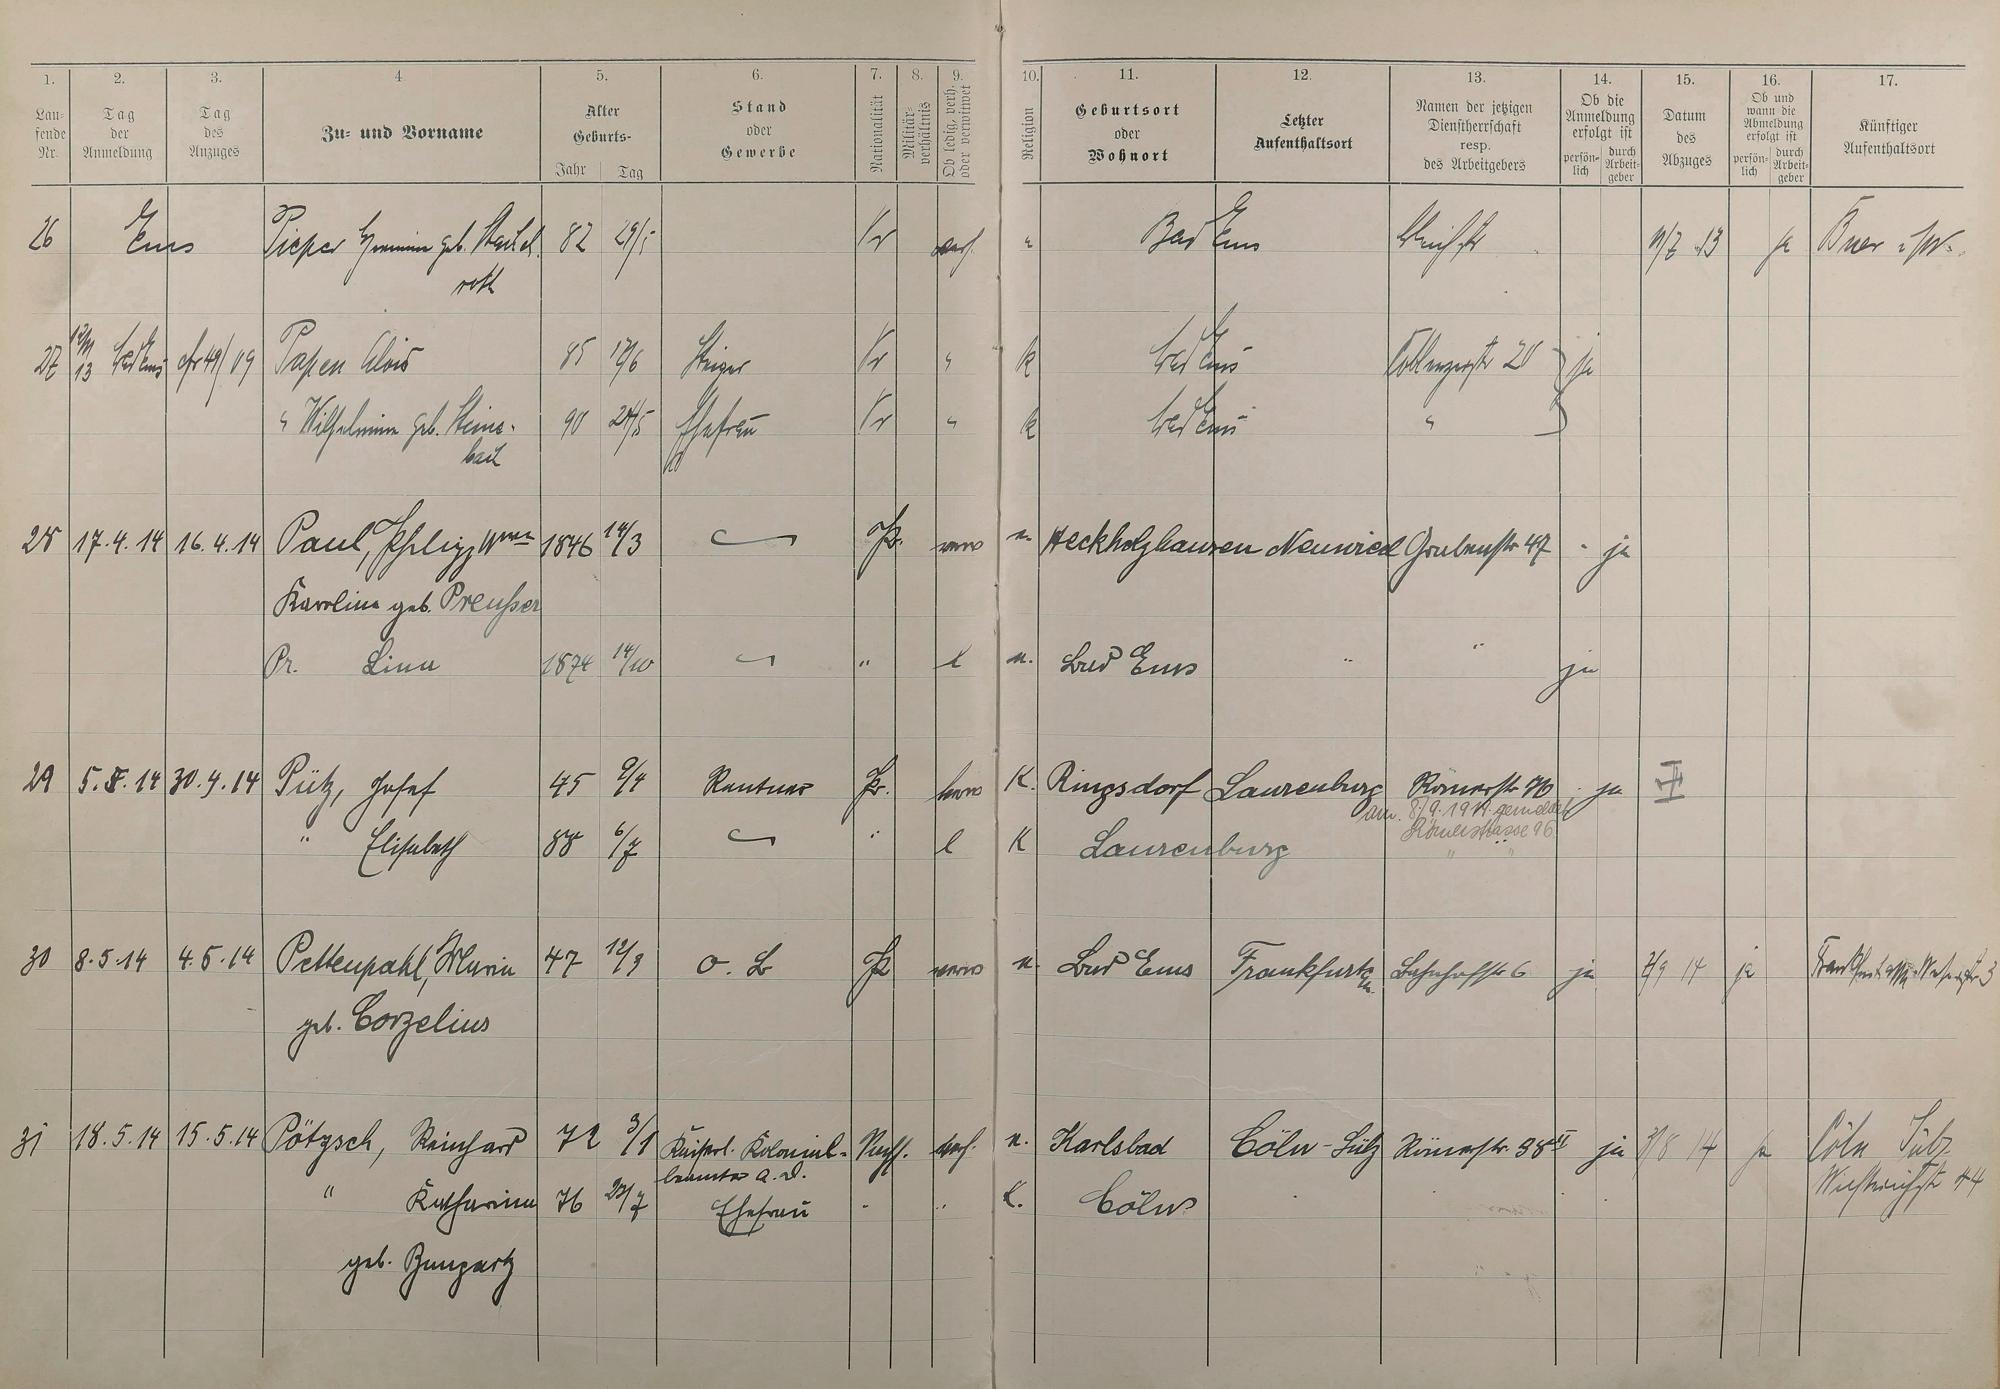 1. 2. 3. 4 5. 6. 7. 8. 9. 10. 11. 12. 13. 14. 15. 16. 17.
Lau-
fende
Nr.
Tag
der
Anmeldung
Tag
des
Anzuges
Zu- und Vorname
Alter
Geburts-
Jahr Tag
Stand
oder
Gewerbe
Nationalität
Militär-
verhältnis
Ob ledig, verh.
oder verwitwet
Religion
Geburtsort
oder
Wohnort
Letzter
Aufenthaltsort
Namen der jetzigen
Dienstherrschaft
resp.
des Arbeitgebers
Ob die
Anmeldung
erfolgt ist
persön-
lich
durch
Arbeit-
geber
Datum
des
Abzuges
Ob und
wann die
Abmeldung
erfolgt ist
persön-
lich
durch
Arbeit-
geber
Künftiger
Aufenthaltsort
26 Ems Pieper geb. 82 29/5 Pr verh. " Bad Ems 13 ja Buer i/W.
roth
27 13 Bad Ems 09 Papen Alois 85 12/6 Steiger Pr " k Bad Ems Coblenzerstr 20 ja
" Wilhelmine geb. Stein- 90 24/5 Ehefrau Pr " k Bad Ems "
bach
28 17.4.14 16.4.14 Paul, Philipp Wwe 1846 14/3 — Pr. verw e. Heckholzhausen Neuwied Grabenstr 47 - ja
Karoline geb. Preußer
Pr. Lina 1874 14/10 — " l e. Bad Ems " " ja
29 5.5.14 30.4.14 Pütz, Josef 45 9/4 Rentner Pr. verw K. Ringsdorf Laurenburg Römerstr 76 ja
am 8/9.1914 gemeldet
Römerstrasse 96
" Elisabeth 88 6/7 — " l K Laurenburg " "
30 8.5.14 4.5.14 Pettenpohl, Maria 47 12/9 o. B Pr verw e. Bad Ems Frankfurt a/M. Bahnhofstr 6 ja 2/9 14 ja Frankfurt a/M. 3
geb. Corzelius
31 18.5.14 15.5.14 Pötzsch, Reinhard 72 3/1 Kaiserl. Kolonial- verh. e. Karlsbad Cöln-Sülz Römerstr. 38 II ja 3/8 14 ja Cöln Sülz
beamter a. D. 44
" Katharina 76 23/7 Ehefrau " " K. Cöln
geb. Bungartz